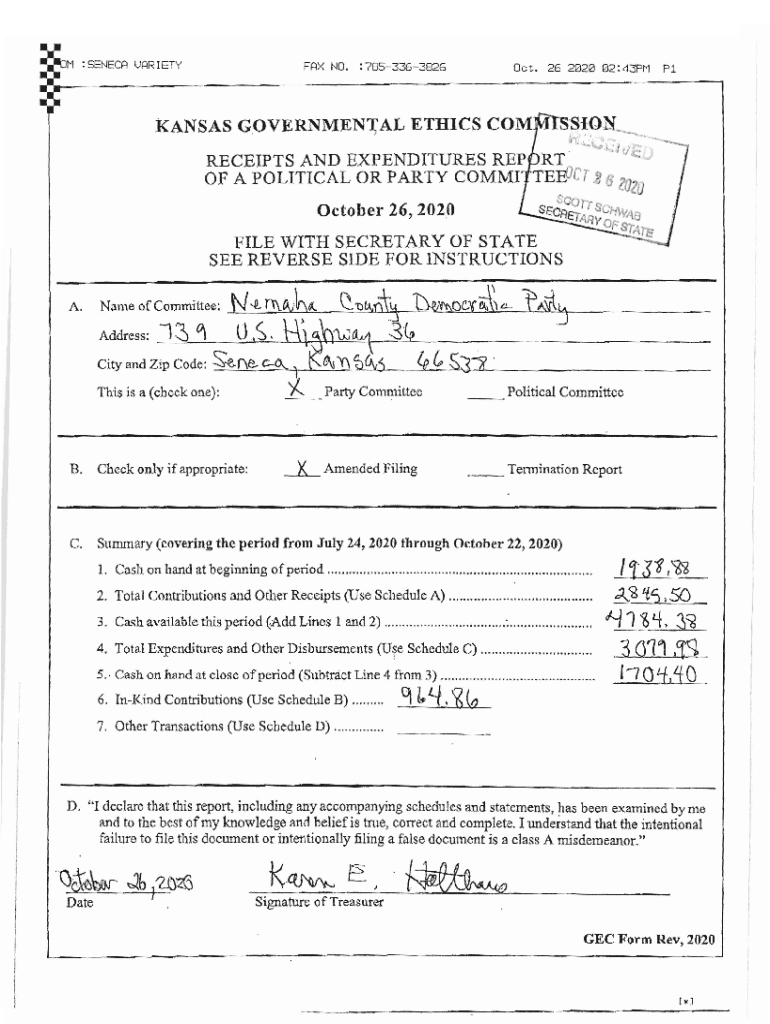 OM :SENECA VARIETY FAX NO. :785-336-3826 Oct. 26 2020 02:43PM P1
KANSAS GOVERNMENTAL ETHICS COMMISSION
RECEIVED
RECEIPTS AND EXPENDITURES REPORT
OF A POLITICAL OR PARTY COMMITTEE
OCT 26 2020
SCOTT SCHWAB
SECRETARY OF STATE
October 26, 2020
FILE WITH SECRETARY OF STATE
SEE REVERSE SIDE FOR INSTRUCTIONS
A. Name of Committee: Nemaha County Democratic Party
Address: 739 U.S. Highway 36
City and Zip Code: Seneca, Kansas 66538
This is a (check one): X Party Committee ____ Political Committee
B. Check only if appropriate: X Amended Filing ____ Termination Report
C. Summary (covering the period from July 24, 2020 through October 22, 2020)
1. Cash on hand at beginning of period ........ 1938.88
2. Total Contributions and Other Receipts (Use Schedule A) ........ 2845.50
3. Cash available this period (Add Lines 1 and 2) ........ 4784.38
4. Total Expenditures and Other Disbursements (Use Schedule C) ........ 3079.98
5. Cash on hand at close of period (Subtract Line 4 from 3) ........ 1704.40
6. In-Kind Contributions (Use Schedule B) ........ 964.86
7. Other Transactions (Use Schedule D) ........
D. “I declare that this report, including any accompanying schedules and statements, has been examined by me
and to the best of my knowledge and belief is true, correct and complete. I understand that the intentional
failure to file this document or intentionally filing a false document is a class A misdemeanor.”
October 26, 2020 Karen E. Holthaus
Date Signature of Treasurer
GEC Form Rev, 2020
[*]